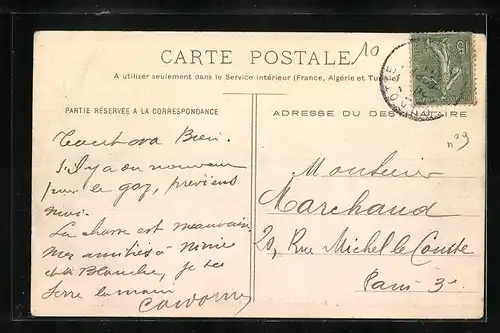 CARTE POSTALE
10
A utiliser seulement dans le Service intérieur (France, Algérie et Tunisie)
PARTIE RÉSERVÉE A LA CORRESPONDANCE
Tout va Bien.
S'il y a du nouveau
pour le gaz, préviens
moi.
La chasse est mauvaise
mes amitiés à
et à Blanche, je te
serre la main
ADRESSE DU DESTINATAIRE
n°9
Monsieur
Marchand
20, Rue Michel le Comte
Paris 3e
15